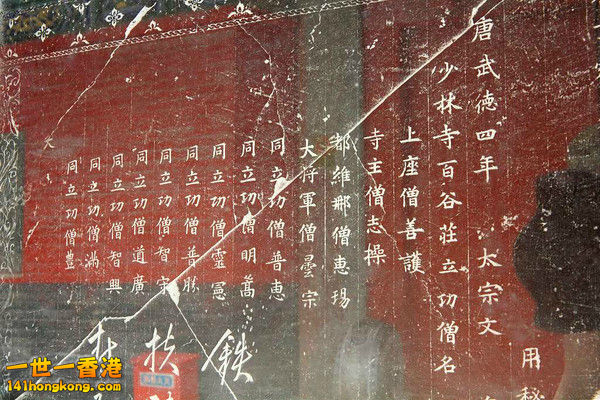 唐武德四年 太宗文
少林寺百谷莊立功僧名
上座僧善護
寺主僧志操
都維那僧惠玚
大將軍僧曇宗
同立功僧普惠
同立功僧明嵩
同立功僧靈憲
同立功僧普勝
同立功僧智守
同立功僧道廣
同立功僧智興
同立功僧滿
同立功僧豊
用秘
鉄
扶
在
一世一香港
141hongkong.com